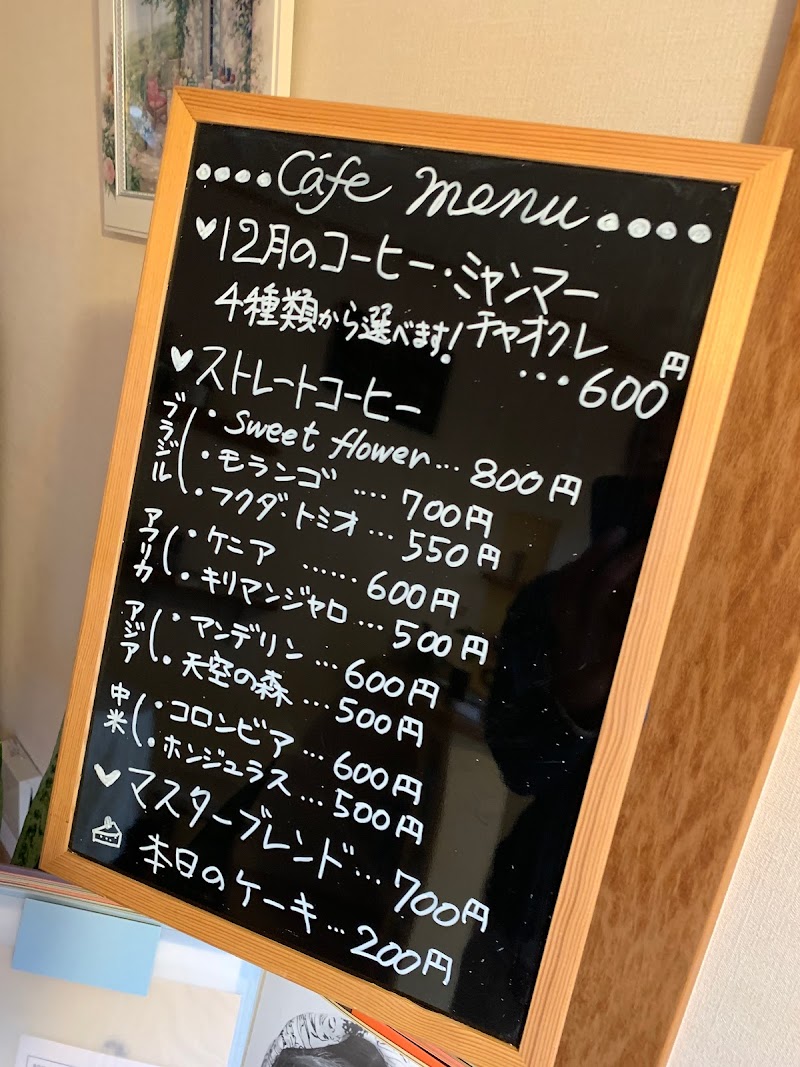 Cáfe menu
12月のコーヒー・ミャンマー
4種類から選べます! チャオクレ
...600円
ストレートコーヒー
ブラジル
・Sweet flower...800円
・モランゴ....700円
・フクダ・トミオ...550円
アフリカ
・ケニア......600円
・キリマンジャロ...500円
アジア
・マンデリン...600円
・天空の森...500円
中米
・コロンビア...600円
・ホンジュラス...500円
マスターブレンド...700円
本日のケーキ...200円